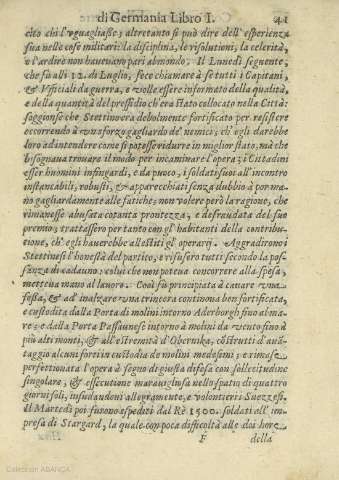 di Germania Libro I. 41
cito chi l'uguagliasse; altretanto si può dire dell'esperienza
sua nelle cose militari: la disciplina, le risolutioni, la celerità,
e l'ardire non haueuano pari al mondo. Il Lunedì seguente,
che fù alli 12. di Luglio, fece chiamare à se tutti i Capitani,
& Vfficiali da guerra, e volle essere informato della qualità,
e della quantità del presidio ch'era stato collocato nella Città:
soggionse che Stetino era debolmente fortificato per resistere
occorrendo à vno sforzo gagliardo de' nemici; ch'egli darebbe
loro ad intendere come si potesse ridurre in miglior stato, mà che
bisognaua trouare il modo per incaminare l'opera; i Cittadini
esser huomini infingardi, e da poco, i soldati suoi all'incontro
instancabili, robusti, & apparecchiati senza dubbio à por ma-
no gagliardamente alle fatiche; non volere però la ragione, che
rimanesse abusata cotanta prontezza, e defraudata del suo
premio; trattassero pertanto con gl'habitanti della contribu-
tione, ch' egli hauerebbe allestiti gl' operarij. Aggradirono i
Stettinesi l'honestà del partito, e risusero tutti secondo la pos-
sanza di cadauno: colui che non poteua concorrere alla spesa,
metteua mano al lauoro. Così fù principiata à cauare vna
fossa, & ad inalzare vna trincera continoua ben fortificata,
e custodita dalla Porta di molini intorno Aderborgh fino al ma-
re; e dalla Porta Passaunese intorno à molini da vento fino à
più alti monti, & all'estremità d'Obernika, costrutti d'auã-
taggio alcuni forti in custodia de molini medesimi; e rimase
perfettionata l'opera à segno di giusta difesa con sollecitudine
singolare, & essecutione marauigliosa nello spatio di quattro
giorni soli, insudandoui allegramente, e volontieri i Suezzesi.
Il Martedì poi furono espediti dal Rè 1500. soldati all' im-
presa di Stargard, la quale con poca difficoltà alle doi hore
F della
Colección ABANCA